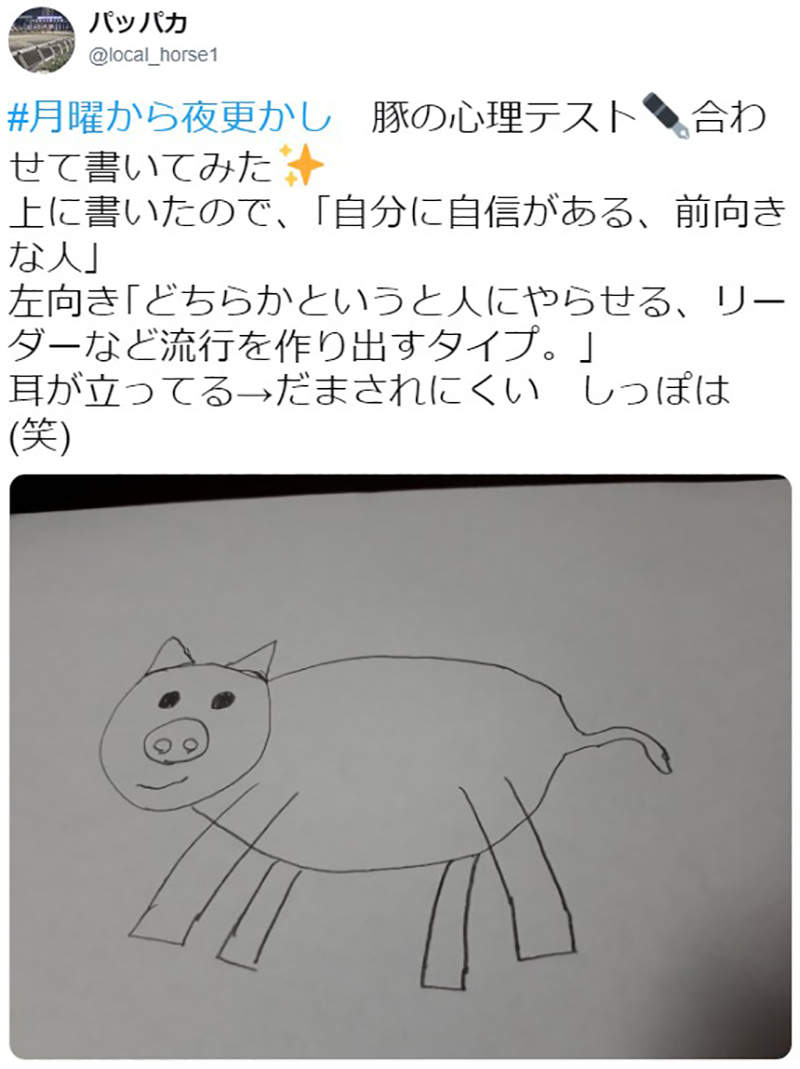 パッパカ
@local_horse1
#月曜から夜更かし　豚の心理テスト✒合わ
せて書いてみた✨
上に書いたので、「自分に自信がある、前向き
な人」
左向き「どちらかというと人にやらせる、リー
ダーなど流行を作り出すタイプ。」
耳が立ってる→だまされにくい　しっぽは
(笑)